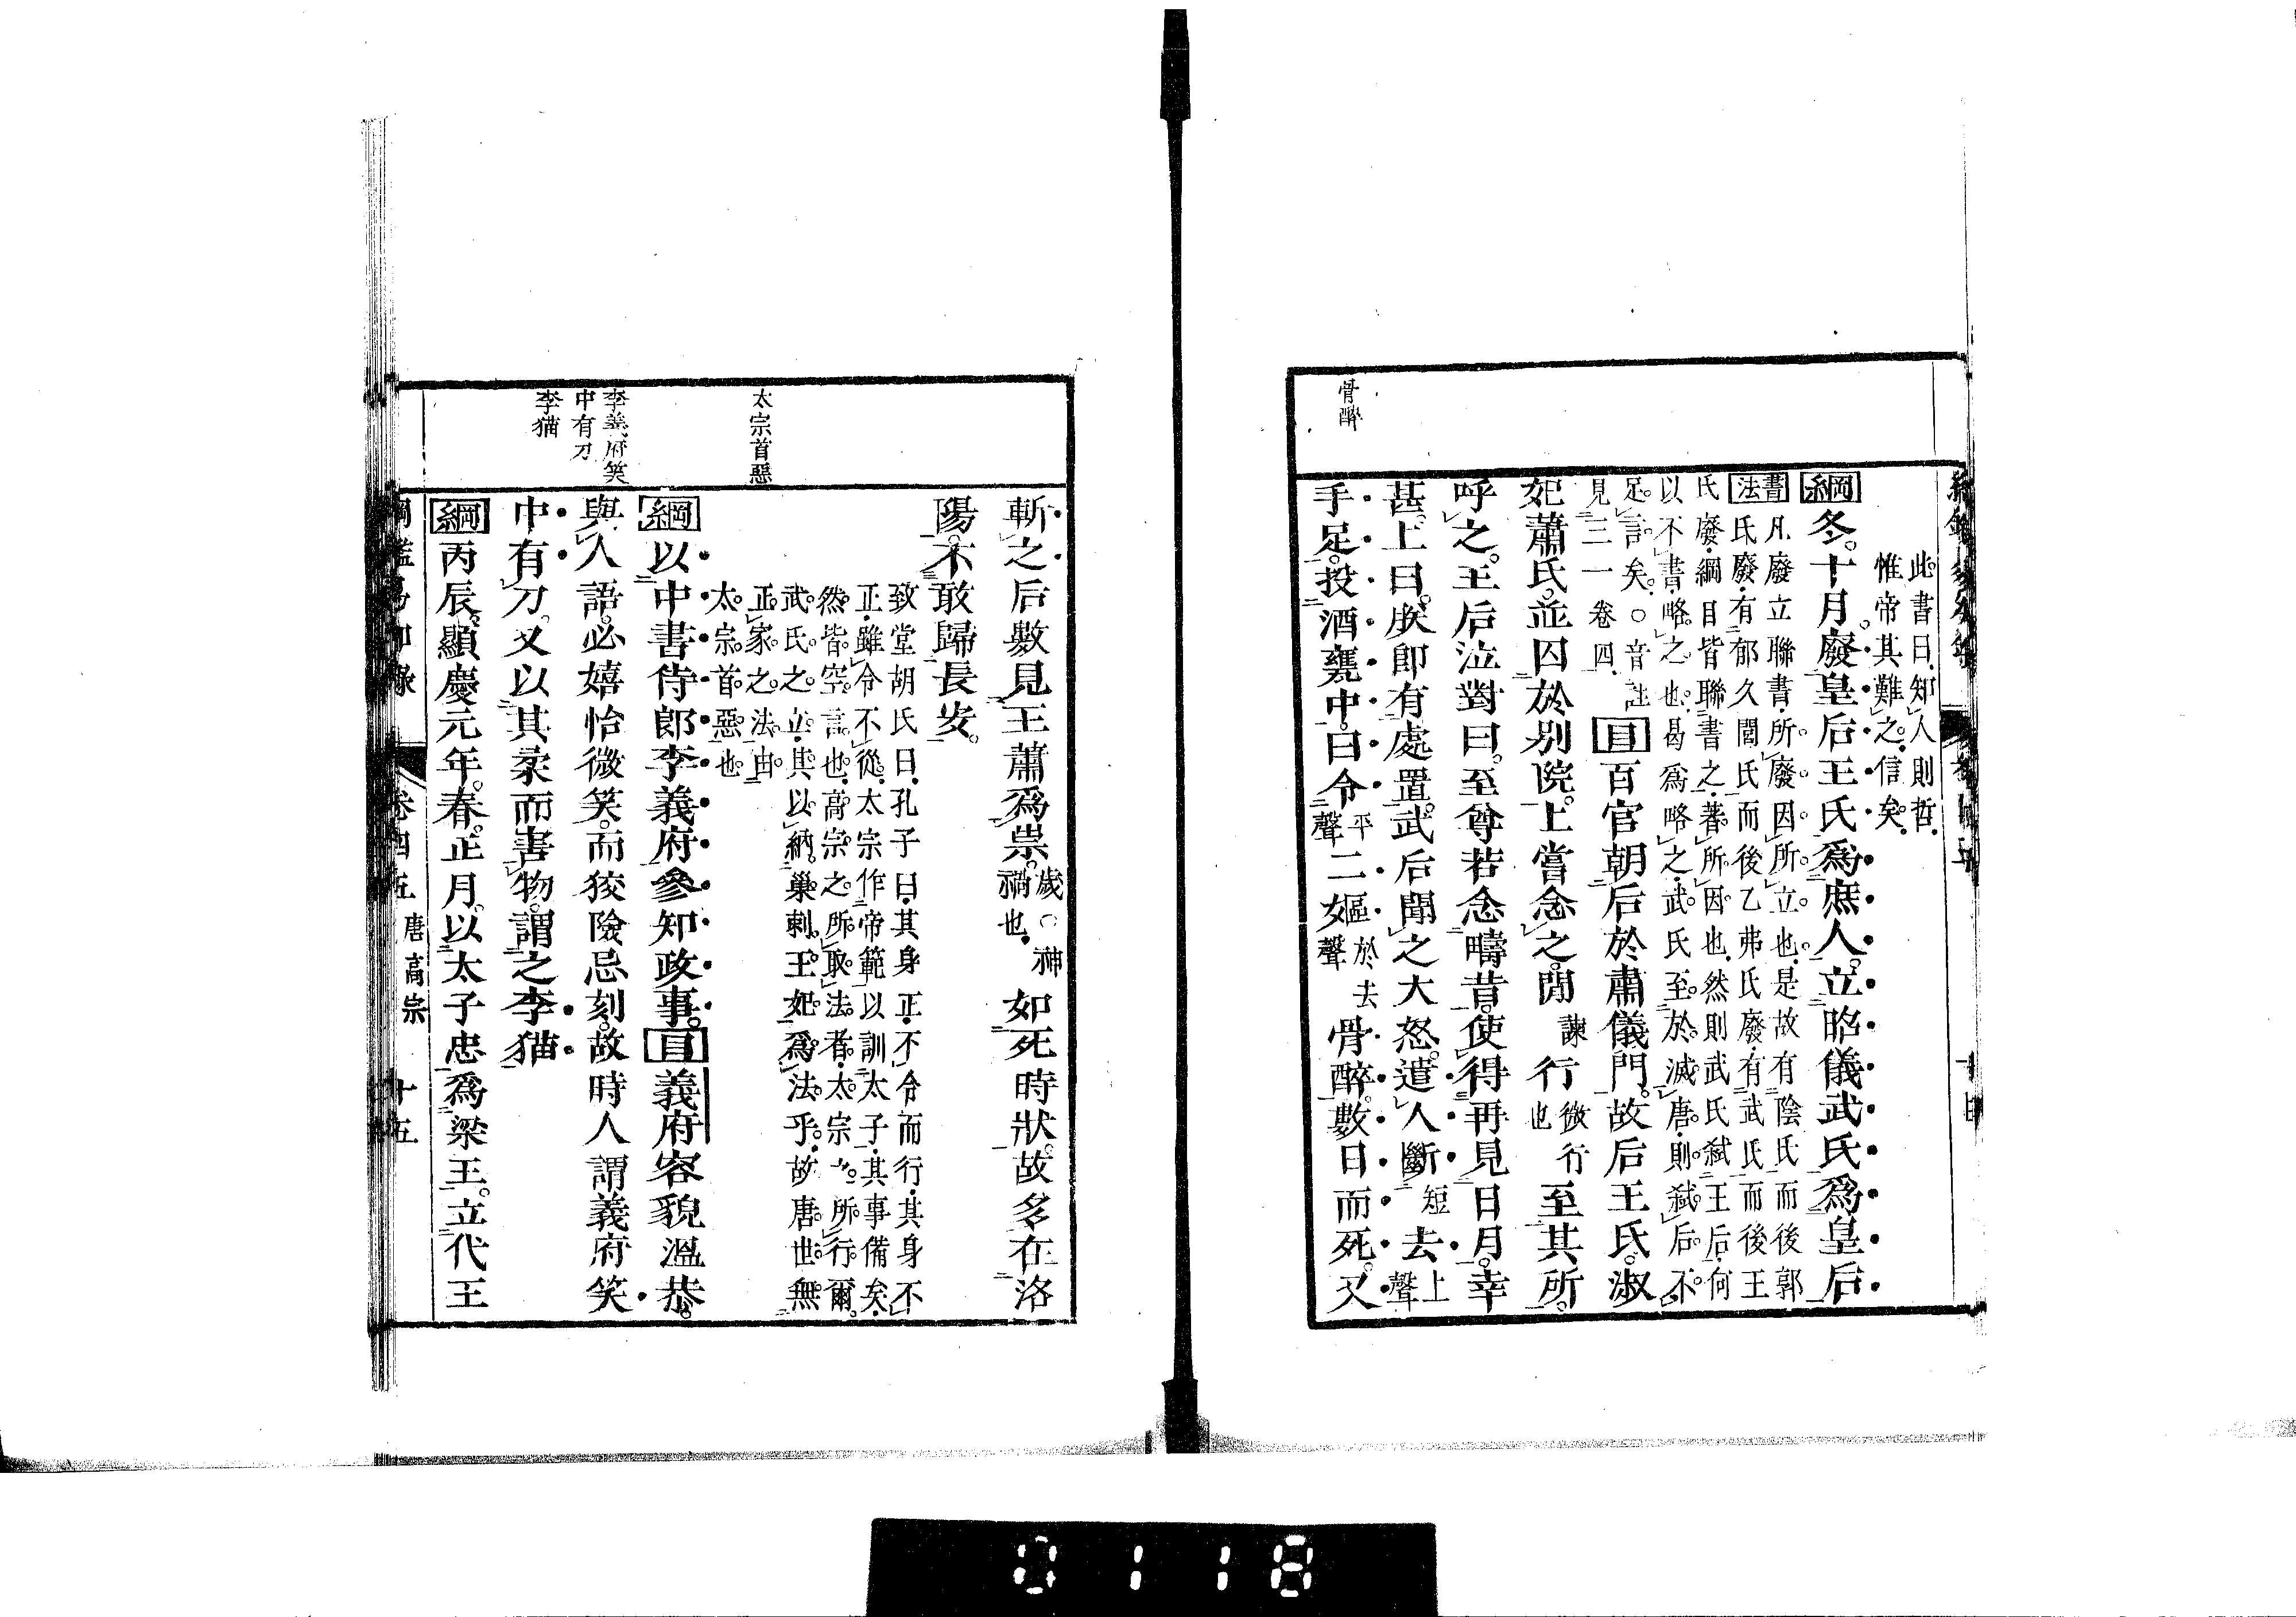 骨醉
此書曰知人則哲
惟帝其難之信矣
綱冬十月廢皇后王氏爲庶人立昭儀武氏爲皇后
書法凡廢立聯書所廢因所立也是故有陰氏而後郭
氏廢有郁久閭氏而後乙弗氏廢有武氏而後王
氏廢綱目皆聯書之著所因也然則武氏弑王后何
以不書略之也曷爲略之武氏至於滅唐則弑后不
足言矣○音註
見三一卷四
目百官朝后於肅儀門故后王氏淑
妃蕭氏並囚於別院上嘗念之閒諫行微行也至其所
呼之王后泣對曰至尊若念疇昔使得再見日月幸
甚上曰朕卽有處置武后聞之大怒遣人斷短上聲去
手足投酒甕中曰令平聲二嫗於去聲骨醉數日而死又
太宗首惡
李義府笑
中有刀
李猫
斬之后數見王蕭爲祟歲○神禍也如死時狀故多在洛
陽不敢歸長安
致堂胡氏曰孔子曰其身正不令而行其身不
正雖令不從太宗作帝範以訓太子其事備矣
然皆空言也高宗之所取法者太宗之所行爾
武氏之立其以納巢剌王妃爲法乎故唐世無
正家之法由
太宗首惡也
綱以中書侍郎李義府參知政事目義府容貌溫恭
與人語必嬉怡微笑而狡險忌刻故時人謂義府笑
中有刀又以其柔而害物謂之李猫
綱丙辰顯慶元年春正月以太子忠爲梁王立代王
綱鑑易知錄 卷四五 唐高宗 十五